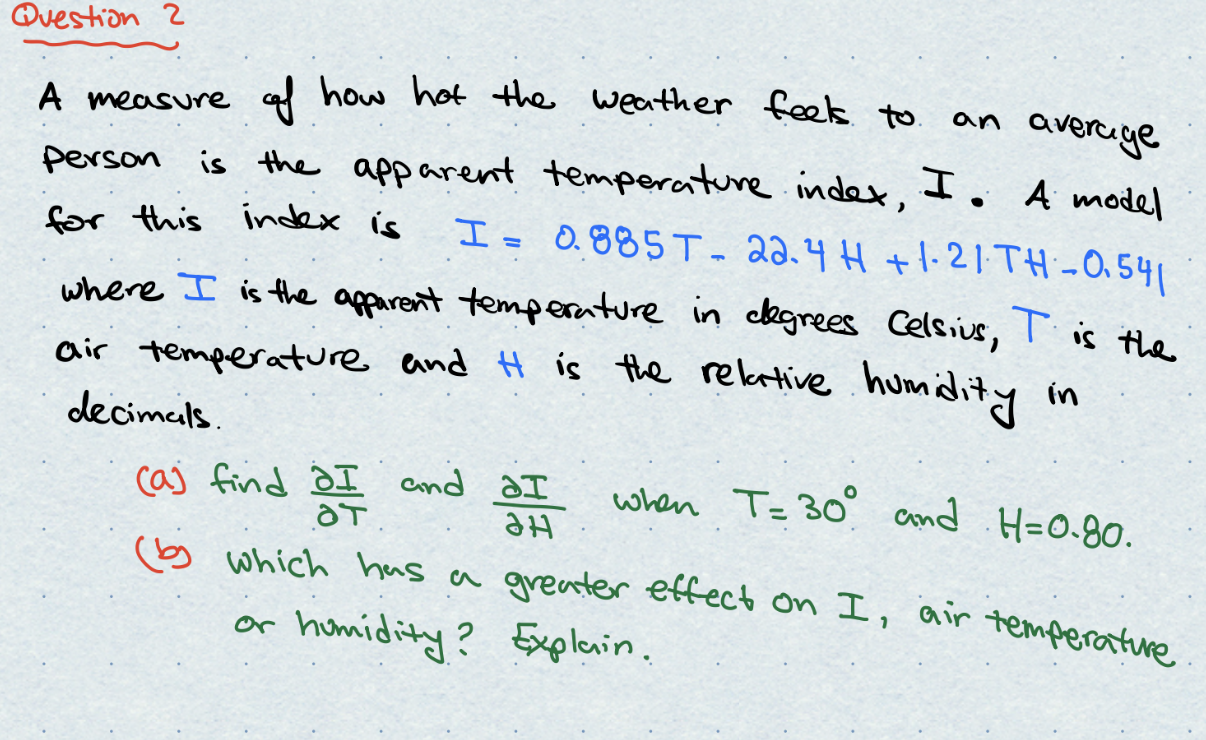 Question 2
A measure of how hot the weather feels to an average
person is the apparent temperature index, I. A model
for this index is I = 0.885T - 22.4H + 1.21TH - 0.541
where I is the apparent temperature in degrees Celsius, T is the
air temperature and H is the relative humidity in
decimals.
(a) find ∂I/∂T and ∂I/∂H when T=30° and H=0.80.
(b) which has a greater effect on I, air temperature
or humidity? Explain.